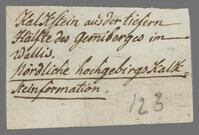 Kalkstein aus der tiefern
Hälfte des Gemiberges im
Wallis.
Nördliche hochgebirgs Kalk-
steinformation.
123